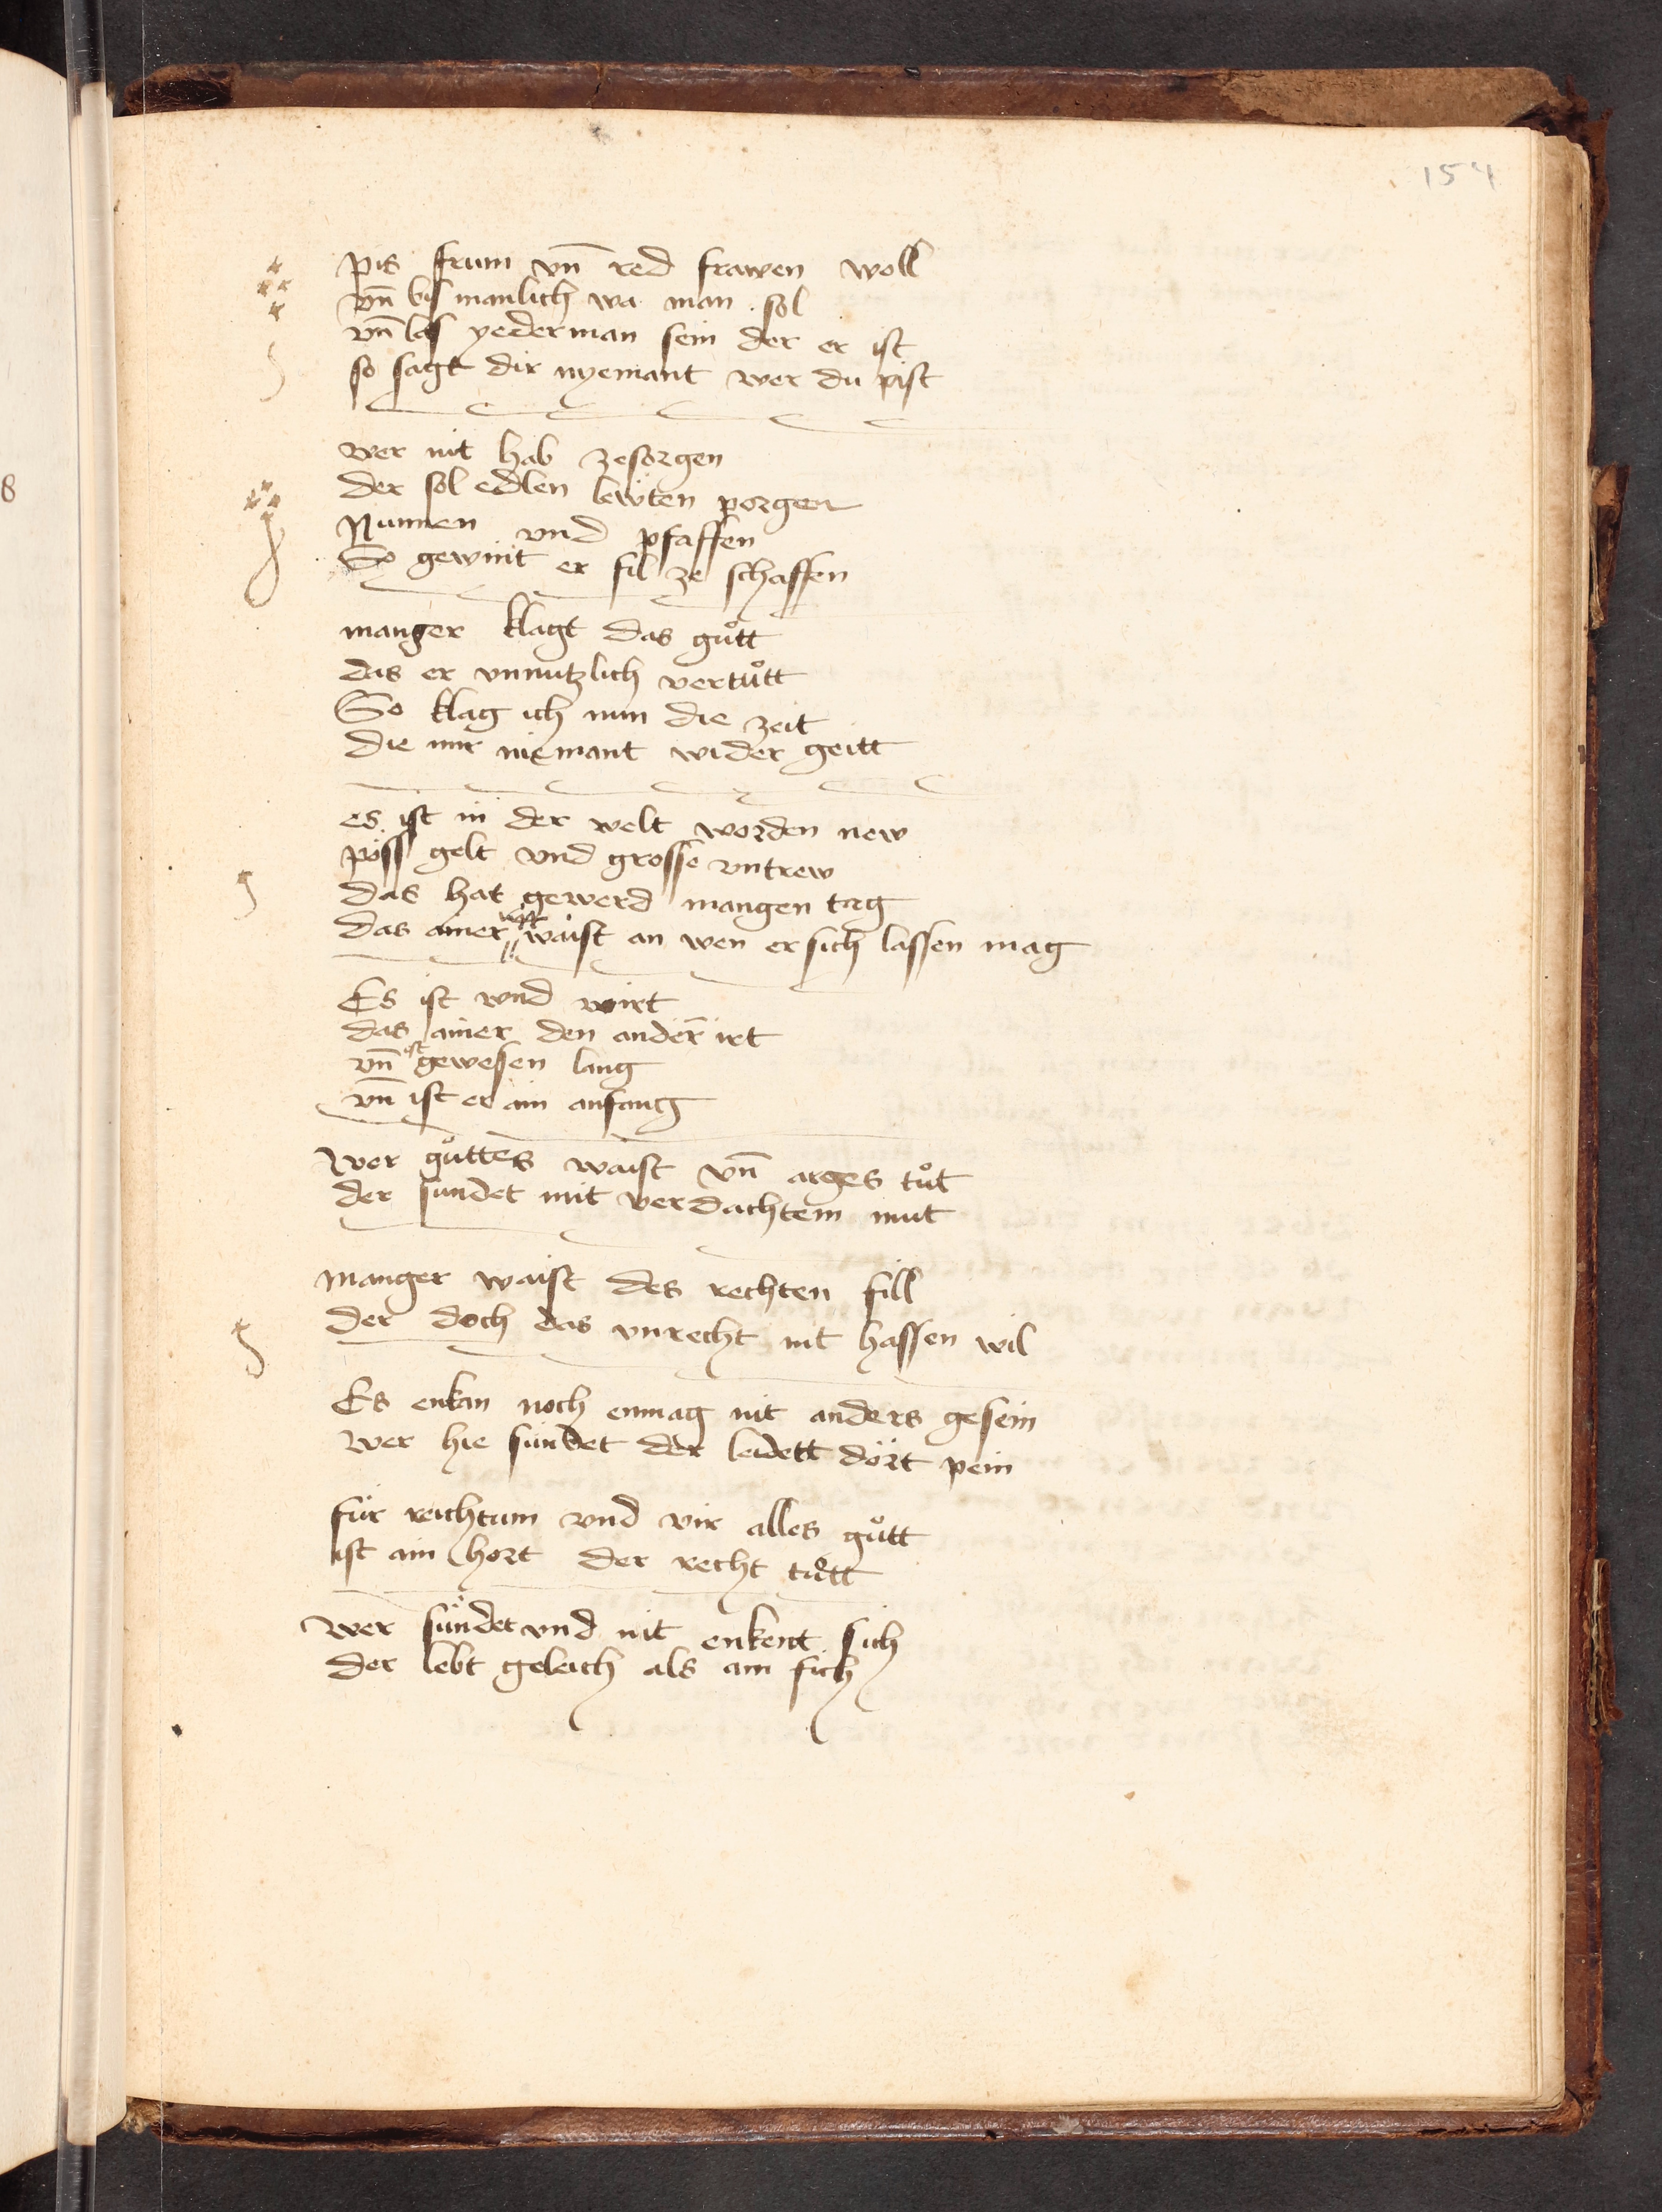 154
pis frum vn̄ red frawen woll
vn̄ bis manlich wa man sol
vn̄ las yederman sein der er ist
so sagt dir nyemant wer du pist
wer nit hab zesorgen
der sol edlen lewten porgen
Nunnen vnd pfaffen
So gewint er fil ze schaffen
manger klagt das gůtt
das er vnnutzlich vertůtt
So klag ich nun die zeit
die mir niemant wider geitt
es ist in der welt worden new
pöss gelt vnd grosse vntrew
das hat gewerd mangen tag
das ainer nit waist an wen er sich lassen mag
Es ist vnd wirt
das ainer den anderr̄ irt
vn̄ ist gewesen lang
vn̄ ist er ain anfang
wer gůttes waist vn̄ arges tůt
der sundet mit verdachtem mut
manger waist des rechten fill
der doch das vnrecht nit hassen wil
Es enkan noch enmag nit anders gesein
wer hie sündet der leidett dört pein
für reichtum vnd vir alles gůtt
ist ain hort der recht tůtt
wer sündet vnd nit enkent sich
der lebt geleich als ain fich